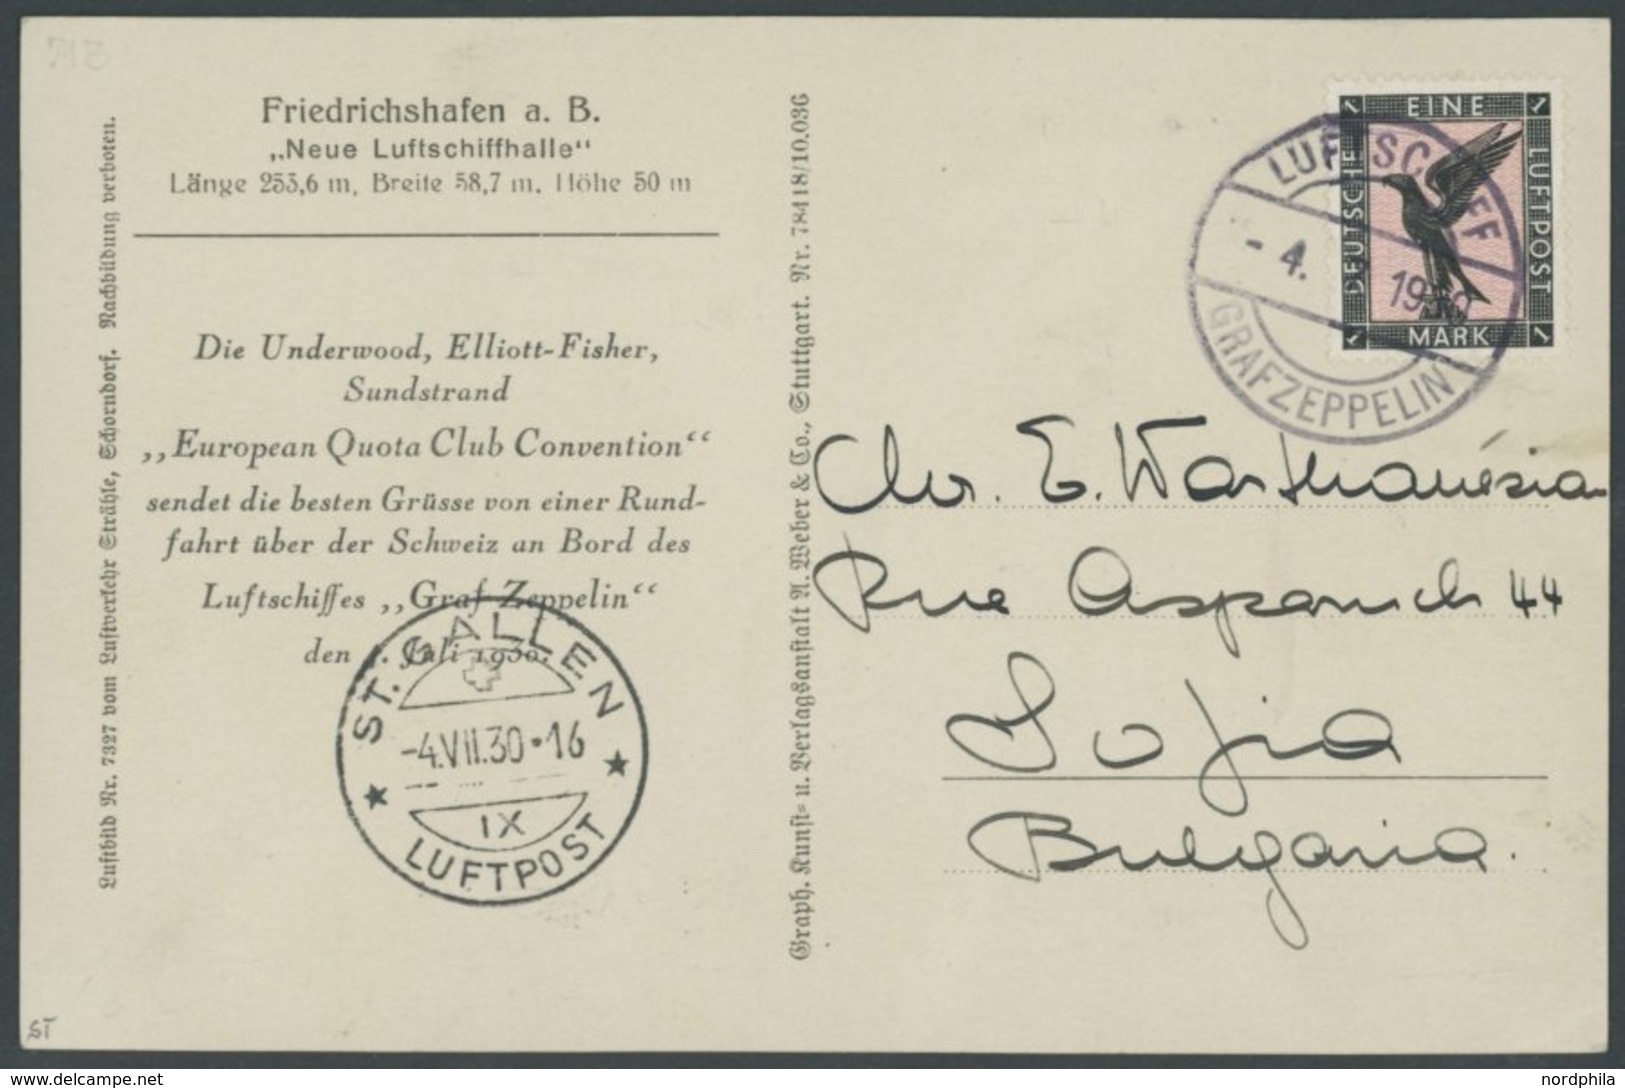 Friedrichshafen a. B.
„Neue Luftschiffhalle“
Länge 253,6 m, Breite 58,7 m, Höhe 50 m
Die Underwood, Elliott-Fisher,
Sundstrand
„European Quota Club Convention“
sendet die besten Grüsse von einer Rund-
fahrt über der Schweiz an Bord des
Luftschiffes „Graf Zeppelin“
den 4. Juli 1930.
ST. GALLEN
-4.VII.30•16
IX
LUFTPOST
Luftbild Nr. 7327 vom Luftverkehr Strähle, Schorndorf. Nachbildung verboten.
Graph. Kunst- u. Verlagsanstalt A. Weber & Co., Stuttgart. Nr. 78418/10.036
EINE
DEUTSCHE
LUFTPOST
MARK
1
1
1
1
LUFTSCHIFF
- 4.
1930
GRAF ZEPPELIN
E.
Rue 44
Sofia
Bulgaria.
ST
delcampe.net
nordphila